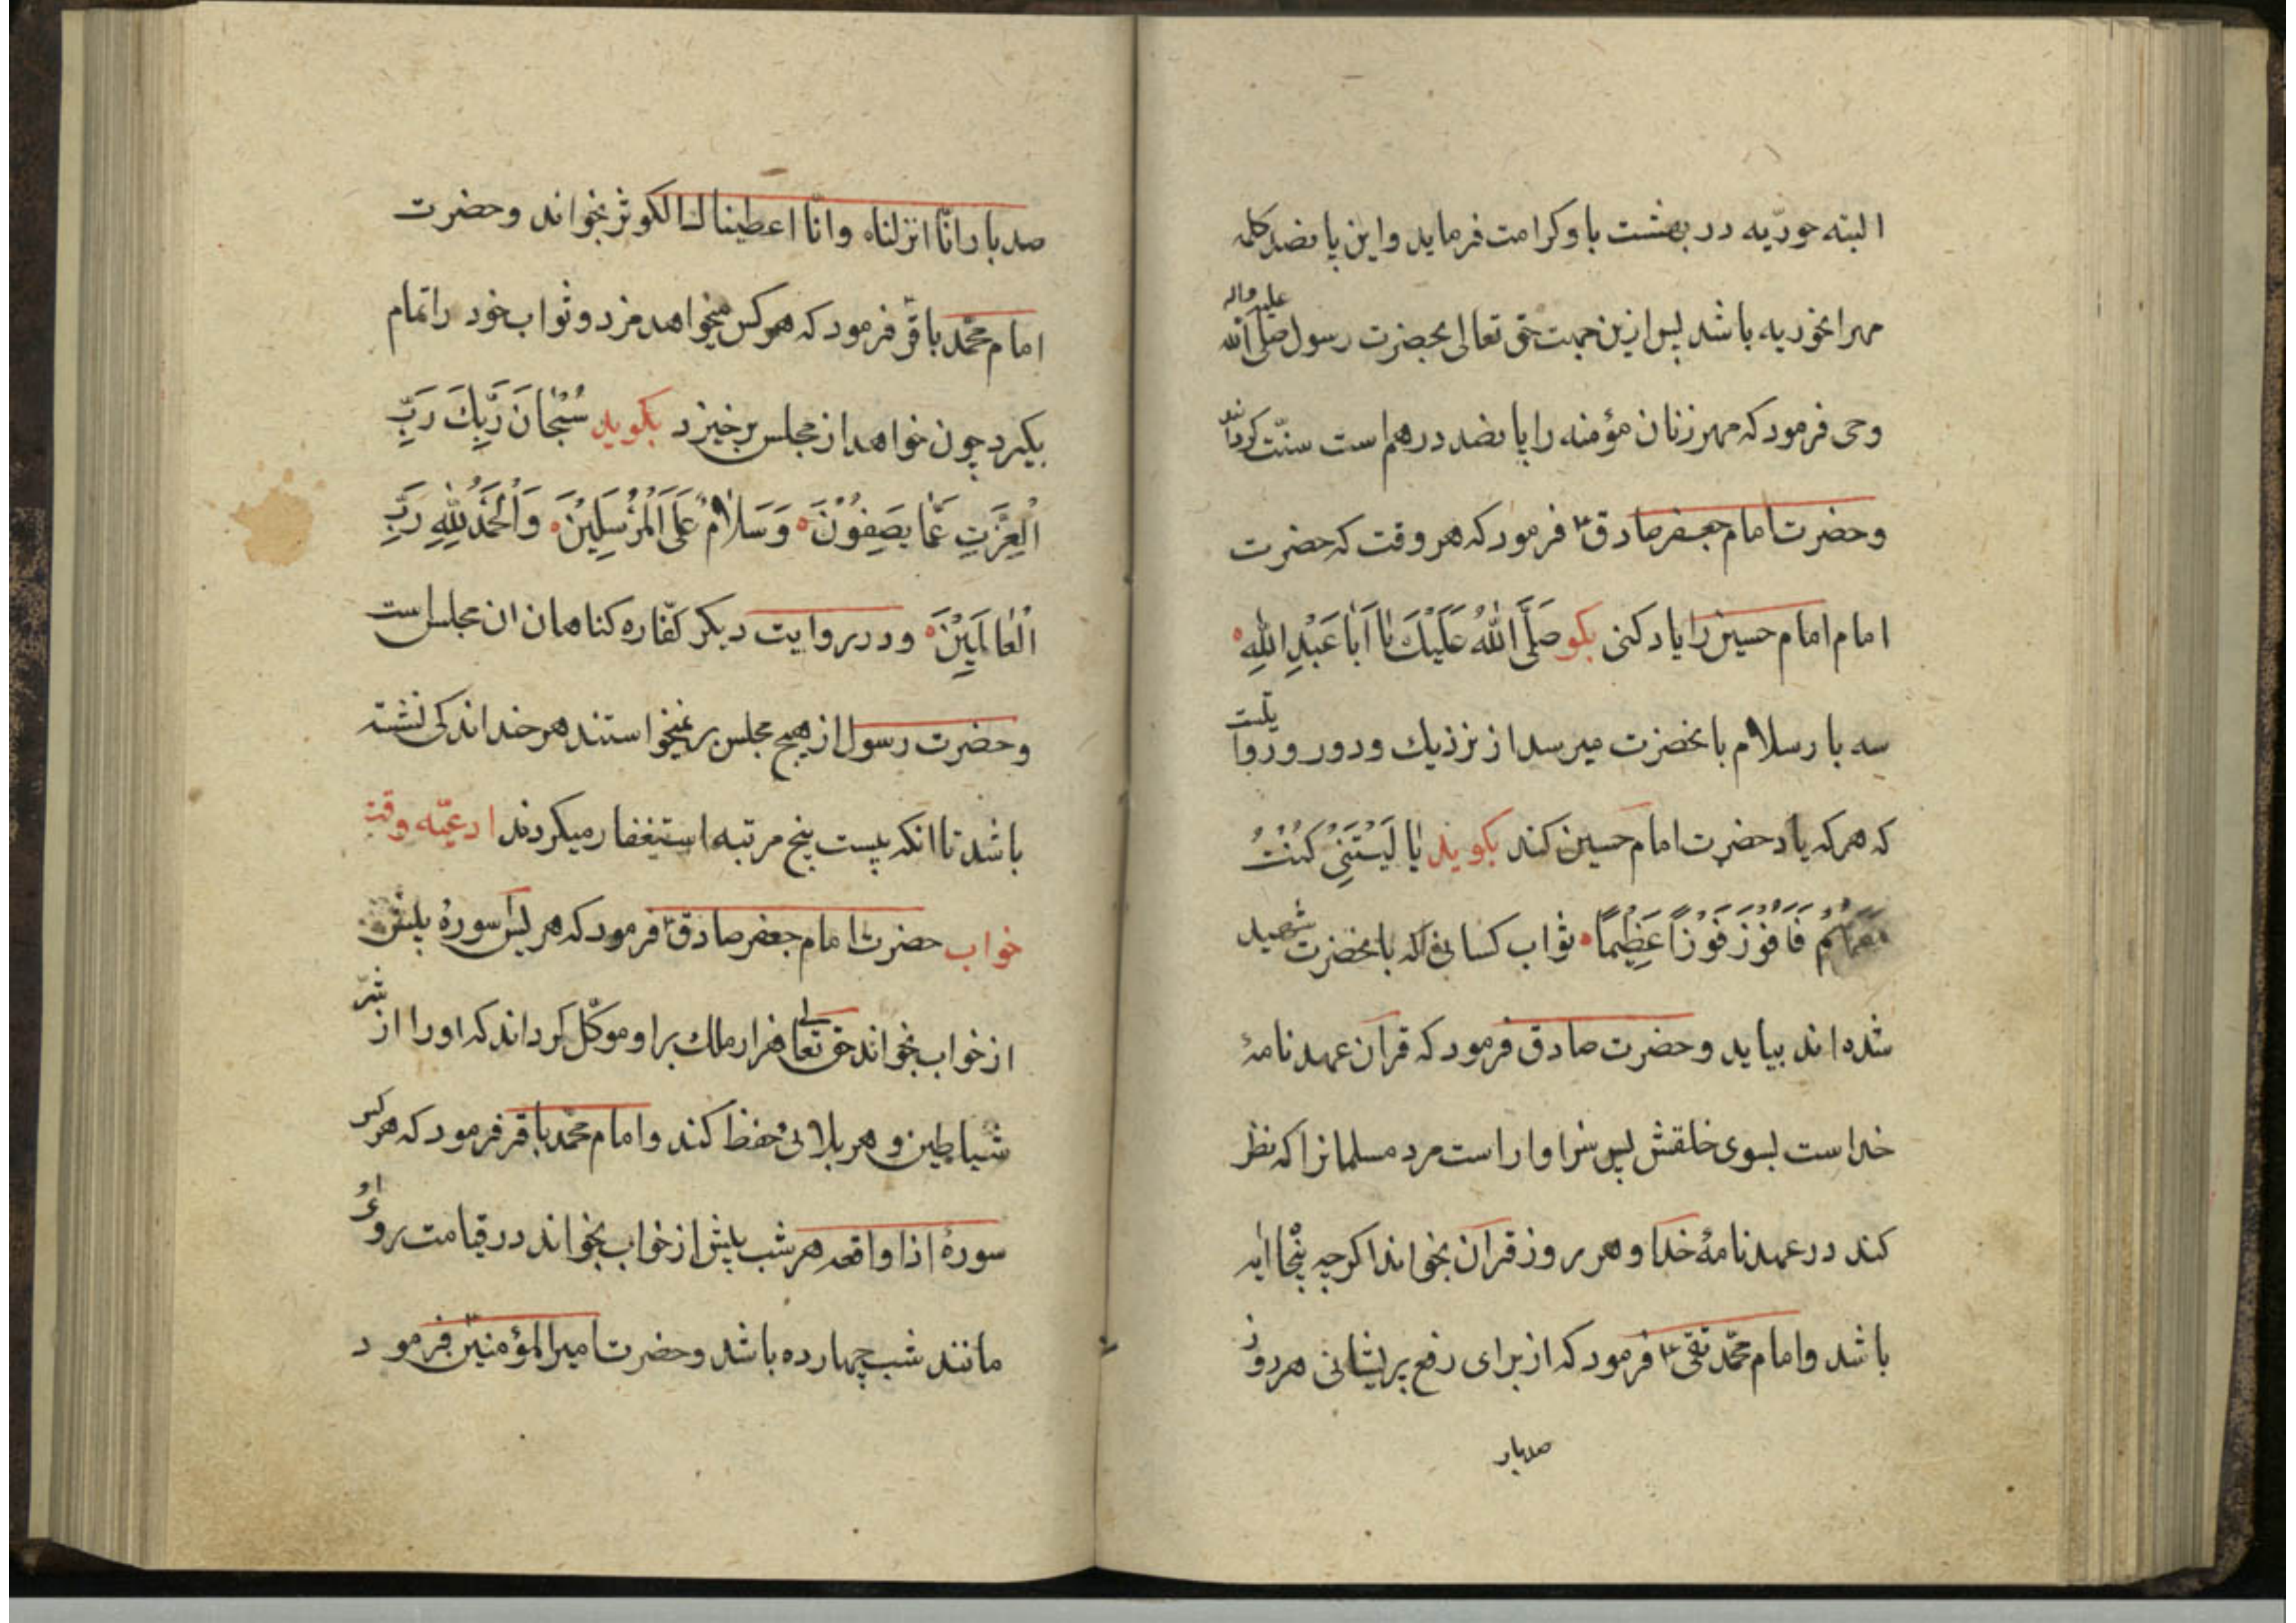 البته حوریّه در بهشت باو کرامت فرماید واین پانصد کلمه
مهر انحوریه باشد پس ازین جهت حق تعالی بحضرت رسول صلی الله علیه واله
وحی فرمود که مهر زنان مؤمنه را پانضد درهم است سنّت کردانید
وحضرت امام جعفر صادق ع فرمود که هر وقت که حضرت
امام امام حسین را یاد کنی بکو صَلَّی اللّٰهُ عَلَیْكَ یٰا اَبٰا عَبْدِ اللّٰهِ
سه بار سلام بانحضرت میرسد از نزدیك ودور ودر روایت
که هر که یاد حضرت امام حسین کند بکوید یٰا لَیْتَنِیْ کُنْتُ
مَعَهُمْ فَاَفُوْزَ فَوْزًا عَظِیْمًا ثواب کسانی که بانحضرت شهید
شده اند بیابد وحضرت صادق فرمود که قرآن عهدنامهٔ
خداست بسوی خلقش پس سزاوار است مرد مسلمانرا که نظر
کند در عهدنامهٔ خدا وهر روز قرآن بخواند اکرچه پنجا ایه
باشد وامام محمّد تقی ع فرمود که از برای رفع پریشانی هر روز
صدبار
صد بار انّا انزلناه وانّا اعطیناك الکوثر بخواند وحضرت
امام محمّد باقر فرمود که هر کس میخواهد مزد وثواب خود را تمام
بکیرد چون خواهد از مجلس برخیزد بکوید سُبْحٰانَ رَبِّكَ رَبِّ
الْعِزَّتِ عَمّٰا یَصِفُوْنَ وَسَلٰامٌ عَلَی الْمُرْسَلِیْنَ وَالْحَمْدُ لِلّٰهِ رَبِّ
الْعٰالَمِیْنَ ودر روایت دیکر کفّاره کناهان ان مجلس است
وحضرت رسول از هیچ مجلس بر نمیخواستند هر خد اندکی نشسته
باشد تا انکه بیست پنج مرتبه استیغفار میکردند ادعیّه وقت
خواب حضرت امام جعفر صادق ع فرمود که هر کس سورهٔ یٰس پیش
از خواب بخواند حق تعالی هزار ملك بر او موکّل کرداند که او را از شرّ
شیاطین و هر بلائی حفظ کند وامام محمّد باقر فرمود که هر کس
سورهٔ اذا واقعه هر شب پیش از خواب بخواند در قیامت روی او
مانند شب چهارده باشد وحضرت امیر المؤمنین فرمود